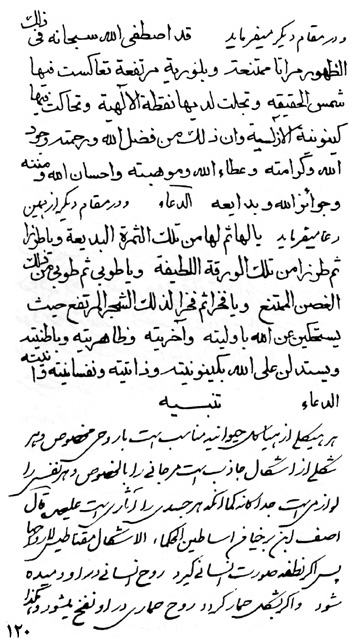 و در مقام دیگر میفرماید قد اصطفی الله سبحانه فی ذلک
الظهور مرآتا ممتنعة و بلوریة مرتفعة تعاکست فیها
شمس الحقیقه و تجلت لدیها نقطة الآلهیة و تحاکت فیها
کینونیة الازلیة و ان ذلک من فضل الله و رحمته وجود
الله و کرامته و عطاء الله و موهبته و احسان الله و مننه
و جوائز الله و بدایعه الدعاء و در مقام دیگر از همین
دعا میفرماید یا لها ثم لها من تلک الثمرة البدیعة و یا طرزا
ثم طرزا من تلک الورقة اللطیفة و یا طوبی ثم طوبی من ذلک
الغصن الممتنع و یا فخرا ثم فخرا لذلک الشجر المرتفع حیث
یستحکین عن الله باولیته و آخریته و ظاهریته و باطنیته
و یستدلن علی الله بکینونیته و ذاتیته و نفسانیته و انیته
الدعاء تنبیه
هر هیکلی از هیاکل حیوانیه مناسب است با روحی مخصوص و هر
شکلی از اشکال جاذب است مر جانی را بالخصوص و هر نفسی را
لوازمیست جداگانه کما انکه هر جسدی را آثاریست علیحده قال
اصف ابن برخیا فی اساطین الحکماء الاشکال مقناطیس لارواحها
پس اگر نطفه صورت انسانی گیرد روح انسانی در او دمیده
شود و اگر بشکل حمار گردد روح حماری در او نفخ میشود و هکذا
۱۲۰